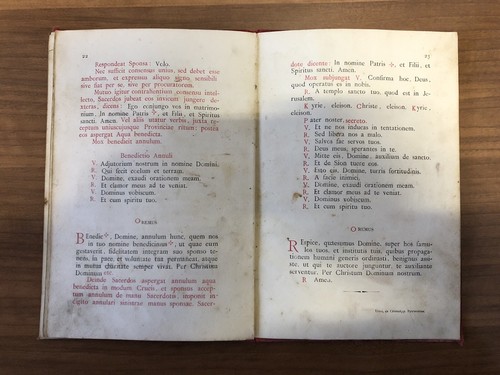 22
Respondeat Sponsa: Volo.
Nec sufficit consensus unius, sed debet esse
amborum, et expressus aliquo signo sensibili
sive fiat per se, sive per procuratorem.
Mutuo igitur contrahentium, consensu intel-
lecto, Sacerdos jubeat eos invicem jungere
dexteras, dicens: Ego conjungo vos in matrimo-
nium. In nomine Patris ✠, et Filii, et Spiritus
sancti. Amen. Vel aliis utatur verbis, juxta re-
ceptum uniuscujusque Provinciae ritum: postea
eos aspergat Aqua benedicta.
Mox benedicit annulum.
Benedictio Annuli
V. Adjutorium nostrum in nomine Domini.
R. Qui fecit coelum et terram.
V. Domine, exaudi orationem meam.
R. Et clamor meus ad te veniat.
V. Dominus vobiscum.
R. Et cum spiritu tuo.
Oremus
Benedic ✠, Domine, annulum hunc, quem nos
in tuo nomine benedicimus ✠, ut quae eum
gestaverit, fidelitatem integram suo sponso te-
nens, in pace, et voluntate tua permaneat, atque
in mutua charitate semper vivat. Per Christum
Dominum etc.
Deinde Sacerdos aspergat annulum aqua
benedicta in modum Crucis, et sponsus accep-
tum annulum de manu Sacerdotis, imponit in
digitali annulari sinistrae manus sponsae, Sacer-
dote dicente: In nomine Patris ✠, et Filii, et
Spiritus sancti. Amen.
Mox subjungat V. Confirma hoc, Deus,
quod operatus es in nobis.
R. A templo sancto tuo, quod est in Je-
rusalem.
Kyrie, eleison. Christe, eleison. Kyrie,
eleison.
Pater noster, secreto.
V. Et ne nos inducas in tentationem.
R. Sed libera nos a malo.
V. Salvos fac servos tuos.
R. Deus meus, sperantes in te.
V. Mitte eis, Domine, auxilium de sancto.
R. Et de Sion tuere eos.
V. Esto eis, Domine, turris fortitudinis.
R. A facie inimici.
V. Domine, exaudi orationem meam.
R. Et clamor meus ad te veniat.
V. Dominus vobiscum.
R. Et cum spiritu tuo.
Oremus
Respice, quaesumus Domine, super hos famu-
los tuos, et institutis tuis, quibus propaga-
tionem humani generis ordinasti, benignus assis-
te, ut qui te auctore junguntur, te auxiliante
serventur. Per Christum Dominum nostrum.
R. Amen.